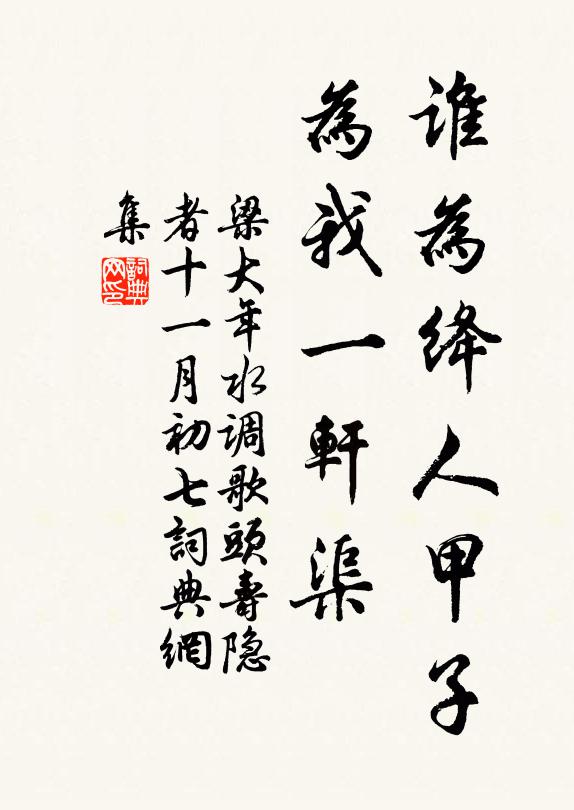 誰為絳人甲子
為我一軒渠
梁大年水調歌頭壽隐
者十一月初七詞典網
集
詞典
网印